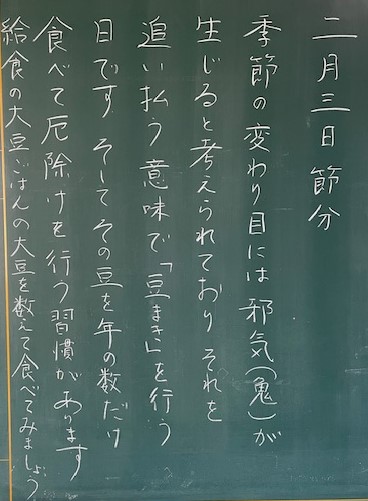 二月三日 節分
季節の変わり目には邪気(鬼)が
生じると考えられておりそれを
追い払う意味で「豆まき」を行う
日です そしてその豆を年の数だけ
食べて厄除けを行う習慣があります
給食の大豆ごはんの大豆を数えて食べてみましょう